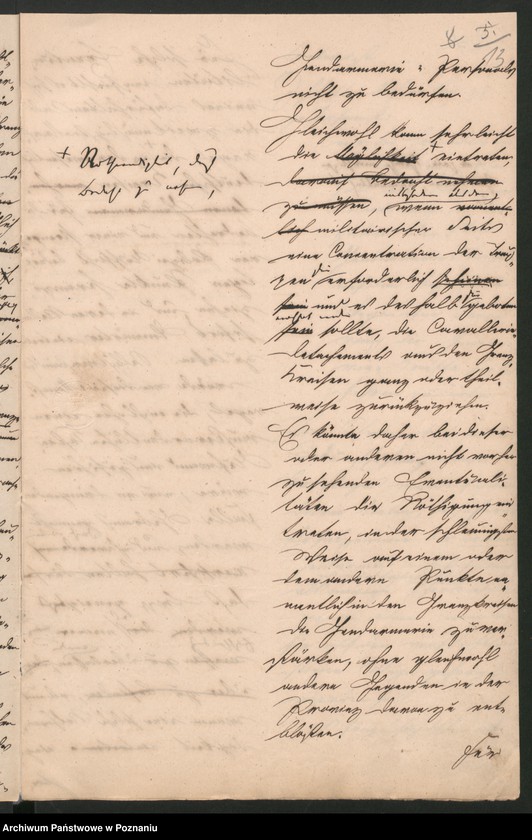 5.
13
Gendarmerie-Personals
nicht zu bedürfen.
Gleichwohl kann sehr leicht
die Möglichkeit + eintreten,
+ Nothwendigkeit, daß
darauf Bedacht nehmen
zu müssen, wenn
militairischer Seits
eine Concentration der Trup-
pen erforderlich scheinen
sein und es deshalb geboten
sein sollte, die Cavallerie-
Detachements aus den Grenz-
Kreisen ganz oder theil-
weise zurückzuziehen.
Es könnte daher bei dieser
oder anderen nicht vorher
zu sehenden Eventuali-
täten die Nöthigung ein
treten, in der schleunigsten
Weise auf einem oder
dem andern Punkte, na-
mentlich in den Grenzkreisen
die Gendarmerie zu ver-
stärken, ohne gleichwohl
andere Gegenden in der
Provinz davon zu ent-
blößen.
Für
Archiwum Państwowe w Poznaniu